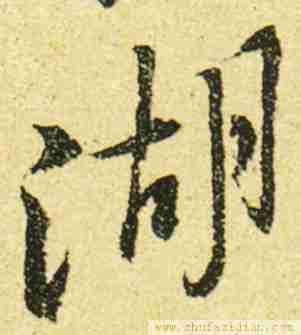 湖
www.shufazidian.com